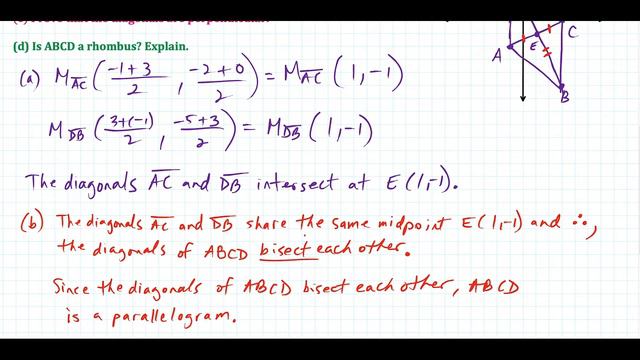 (d) Is ABCD a rhombus? Explain.
(a) M_AC (-1+3/2 , -2+0/2) = M_AC (1,-1)
M_DB (3+(-1)/2 , -5+3/2) = M_DB (1,-1)
The diagonals AC and DB intersect at E (1,-1).
(b) The diagonals AC and DB share the same midpoint E(1,-1) and ∴,
the diagonals of ABCD bisect each other.
Since the diagonals of ABCD bisect each other, ABCD
is a parallelogram.
A
E
C
B